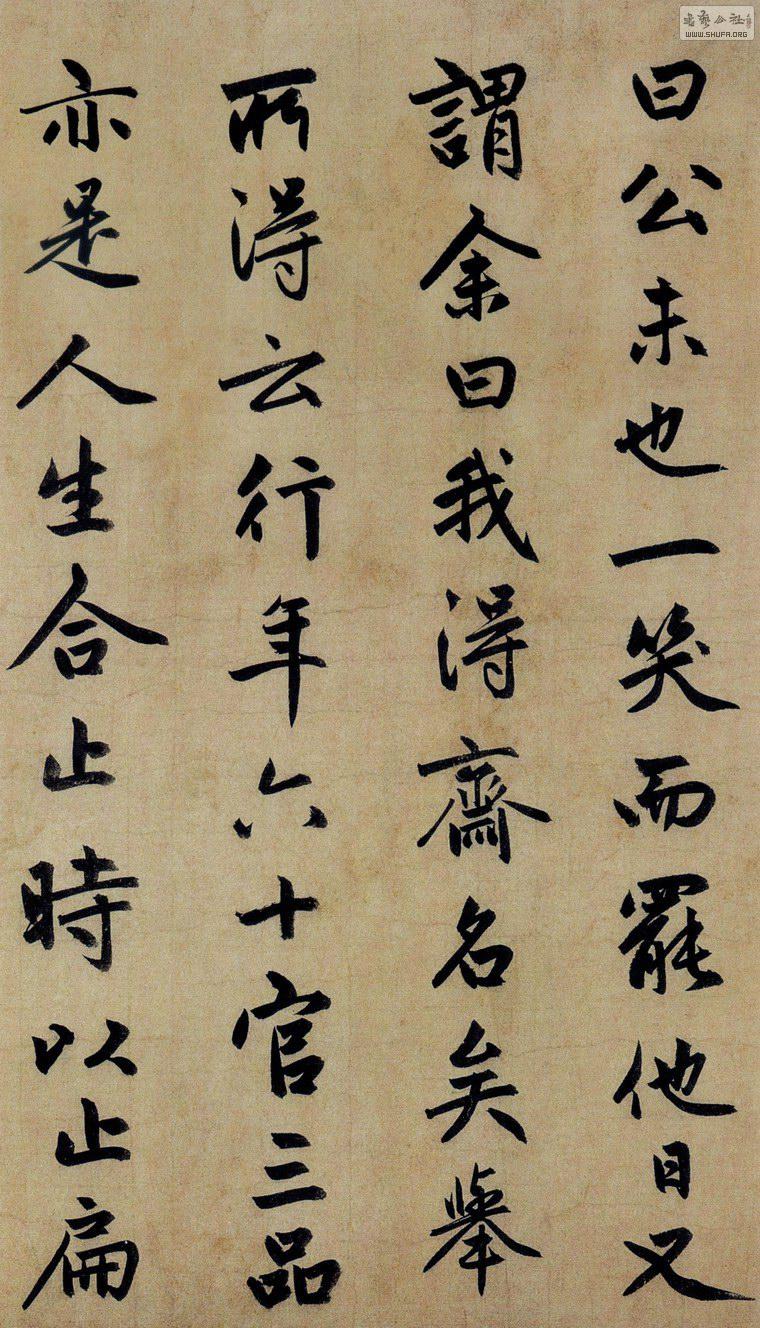 曰公未也一笑而罷他日又
謂余曰我得齋名矣舉
所得云行年六十官三品
亦是人生合止時以止扁
書藝公社
WWW.SHUFA.ORG